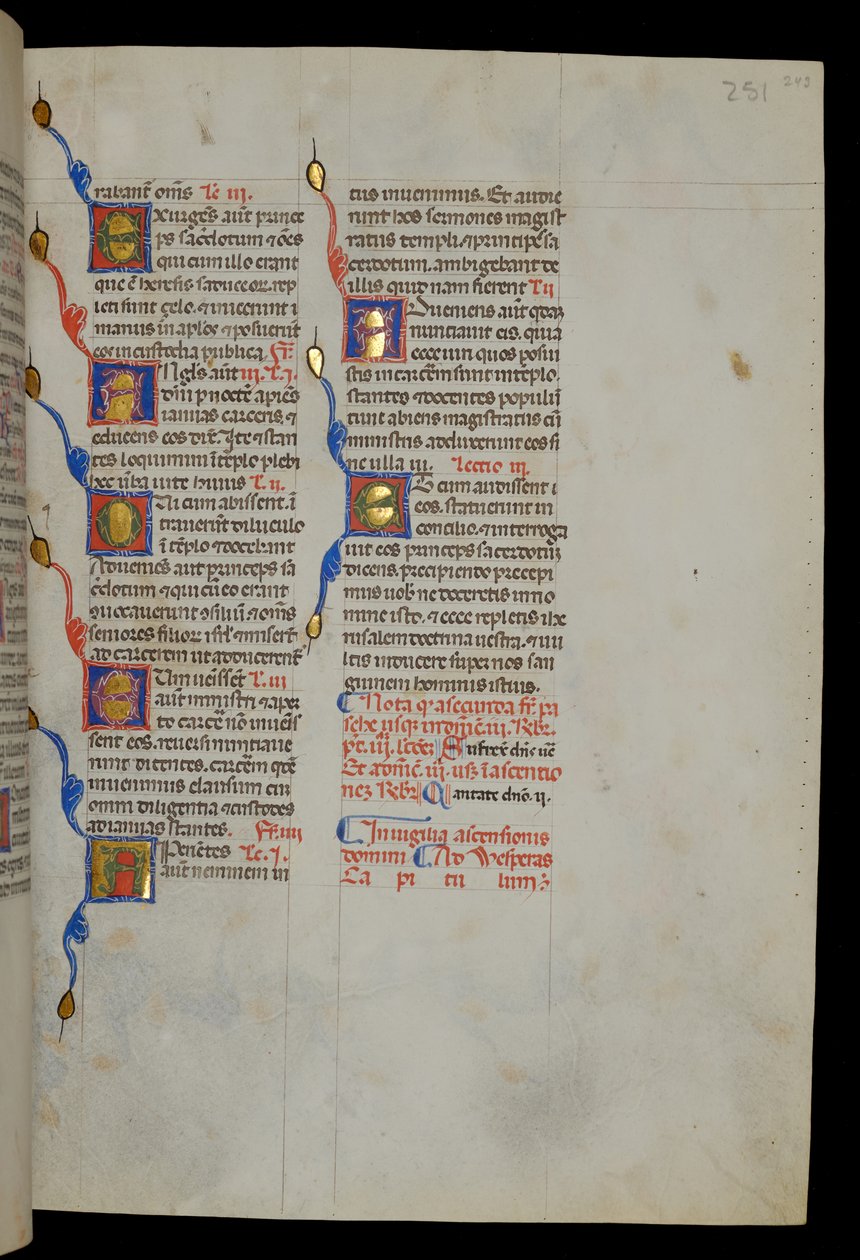 251 249
rabant̄ om̄s Le iii.
Exurgēs aut̄ prince
ps sac̄dotum ⁊ oēs
qui cum illo erant
que ē heresis saduceoꝝ. rep
leti sunt ҫelo. ⁊ iniecerunt ī
manus in apl̄os ⁊ posuerūt
eos in custodia publica. Fr̄.
Angl̄s aut̄ iii. L. j.
dn̄i p noctē apiēs
ianuas carceris. ⁊
educens eos dix̄. Ite ⁊ stan
tes loquimini ī tēplo plebi
hec v̄ba uite huius L. ii.
Qui cum abissent. ī
trauerūt diluculo
ī tēplo ⁊ docebant
Adueniēs aut̄ princeps sa
c̄dotum ⁊ qui cū eo erant
ꝯuocauerunt ꝯsiliū ⁊ om̄s
seniores filioꝝ isrl̄ ⁊ miserūt
ad carcerem ut adducerent̄
Cum uēisset̄ L. iii
aut̄ ministri ⁊ aper
to carcē nō inuēis
sent eos. reuersi nuntiaue
runt dicentes. carcēm qdē
inuenimus clausum cū
omni diligentia ⁊ custodes
ad ianuas stantes. Fr̄. iiii
Apeñtes Le. j.
aut̄ neminem in
tus inuenimus. Et audie
runt hos sermones magist
ratus templi. ⁊ principes sa
cerdotum. ambigebant de
illis quid nam fierent L ii
Adueniens aut̄ qdaꝫ
nunciauit eis. quia
ecce uiri quos posui
stis in carcēm sunt in tēplo.
stantes ⁊ docentes populū
tunc abiens magistratus cū
ministris adduxerunt eos si
ne ulla ui. Lectio iii.
Et cum audissent ī
eos. statuerunt in
concilio. ⁊ interroga
uit eos princeps sacerdotū
dicens. precipiendo precepi
mus uob̄ ne doceretis in no
mine isto. ⁊ ecce repletis ihe
rusalem doctrina uestra. ⁊ uu
ltis inducere super nos san
guinem hominis istius.
Nota ꝙ a secunda fr̄ pa
sche usqꝫ in domīc. iii. Rebr̄.
p̄t. iij. lc̄ēꝫ Surrex̄ dn̄s uē
Et a domīc. iii. usꝫ ī ascentio
neꝫ Rebr̄ Cantate dn̄o. ij.
In uigilia ascensionis
domini Ad Vesperas
Ca pi tu lum: